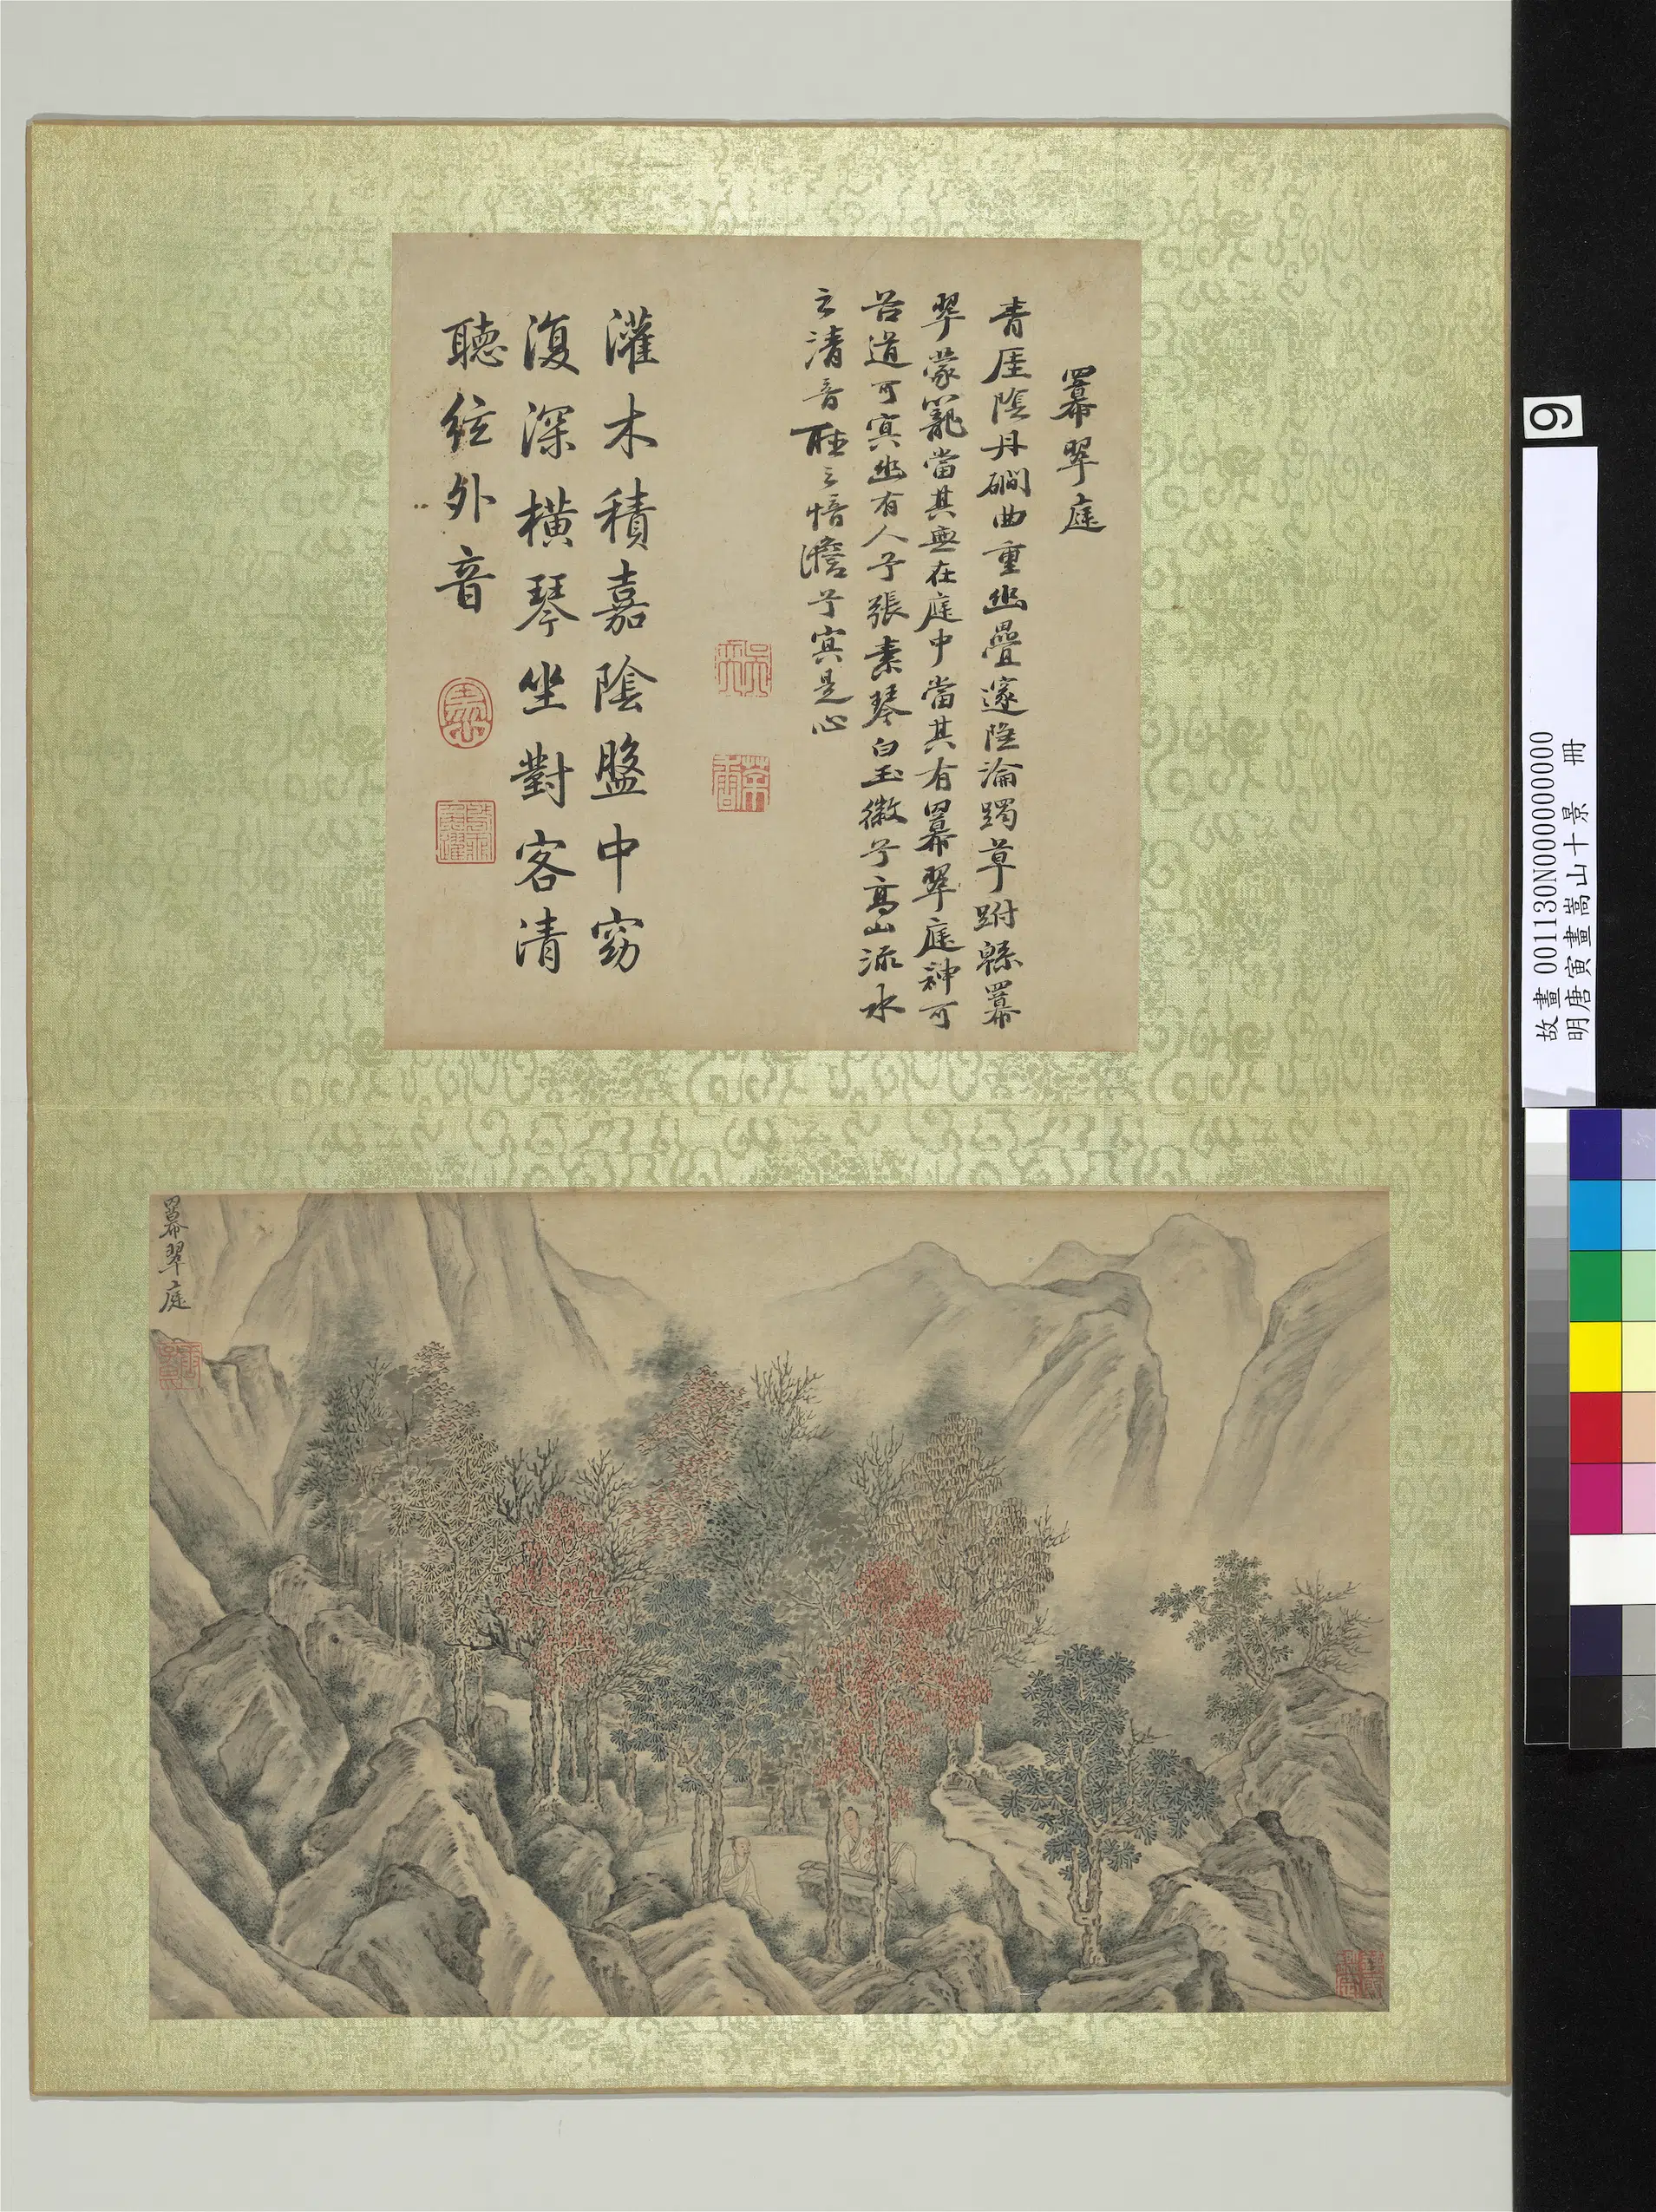 冪翠庭
青厓陰丹磵曲重幽疊邃隂淪躅草跗緜冪
翠蒙籠當其無在庭中當其有冪翠庭神可
谷道可冥幽有人兮張素琴白玉徽兮高山流水
之清音聽之愔澹兮冥是心
灌木積嘉陰盤中窈
復深橫琴坐對客清
聽絃外音
冪翠庭
9
故畫 001130N000000000
明唐寅畫嵩山十景 冊